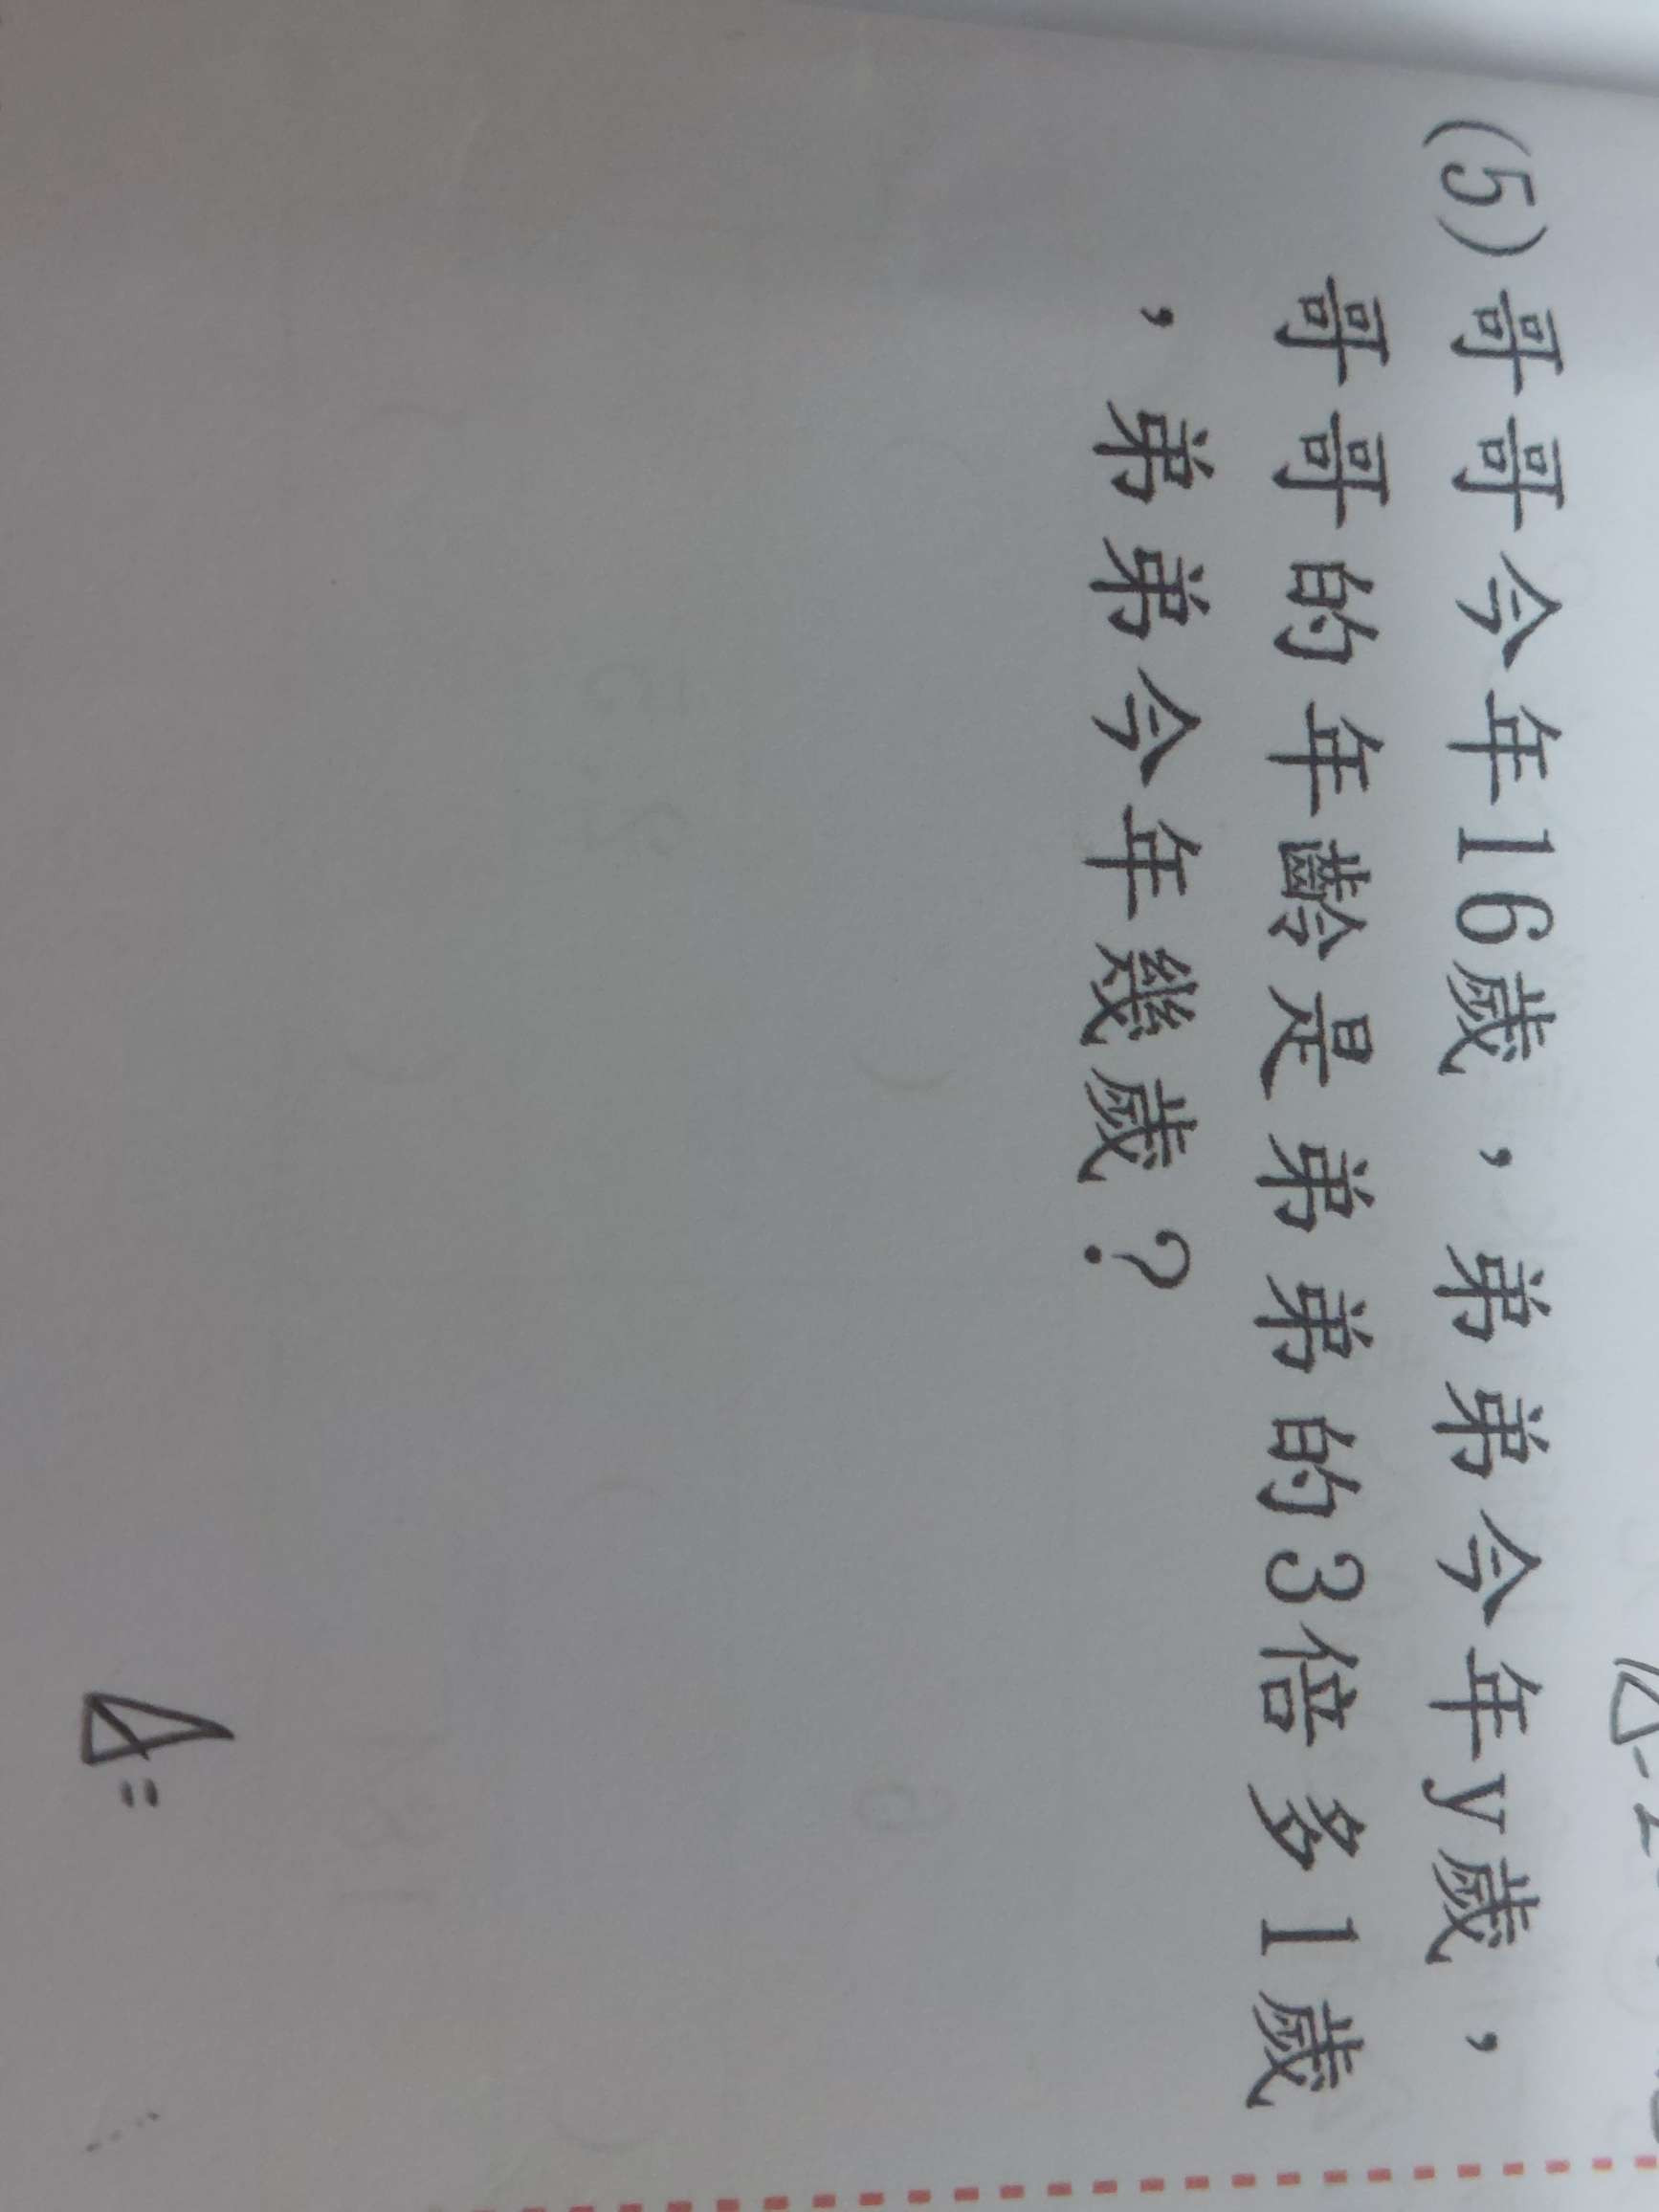 (5)哥哥今年16歲，弟弟今年y歲，
哥哥的年齡是弟弟的3倍多1歲
，弟弟今年幾歲？
A=